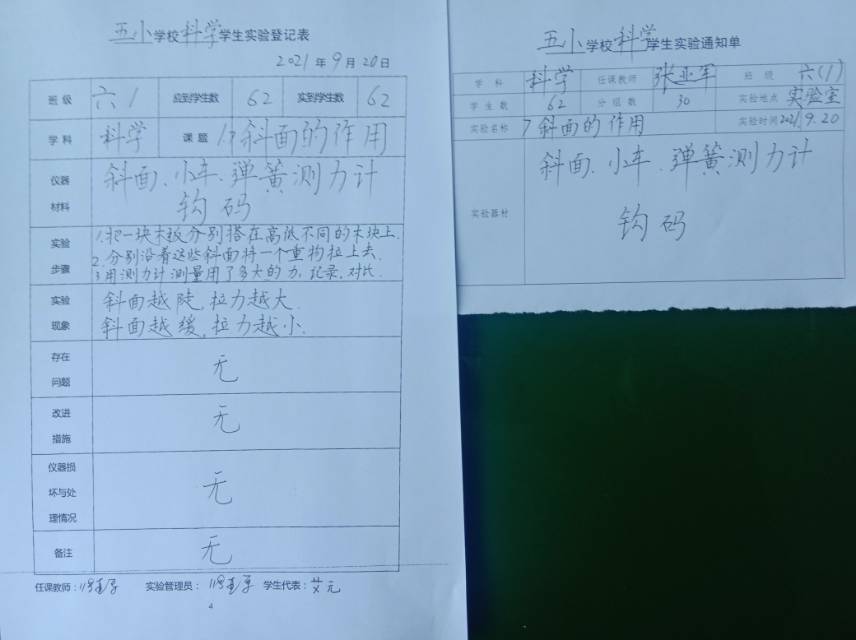 五小学校科学学生实验登记表
2021年9月20日
班级 六1 应到学生数 62 实到学生数 62
学科 科学 课题 17斜面的作用
仪器材料 斜面、小车、弹簧测力计
钩码
实验步骤 1.把一块木板分别搭在高低不同的木块上.
2.分别沿着这些斜面将一个重物拉上去.
3.用测力计测量用了多大的力,记录,对比.
实验现象 斜面越陡,拉力越大.
斜面越缓,拉力越小.
存在问题 无
改进措施 无
仪器损坏与处理情况 无
备注 无
任课教师: 实验管理员: 学生代表:艾元
4
五小学校科学学生实验通知单
学科 科学 任课教师 张亚军 班级 六(1)
学生数 62 分组数 30 实验地点 实验室
实验名称 7斜面的作用 实验时间 2021.9.20
实验器材 斜面、小车、弹簧测力计
钩码